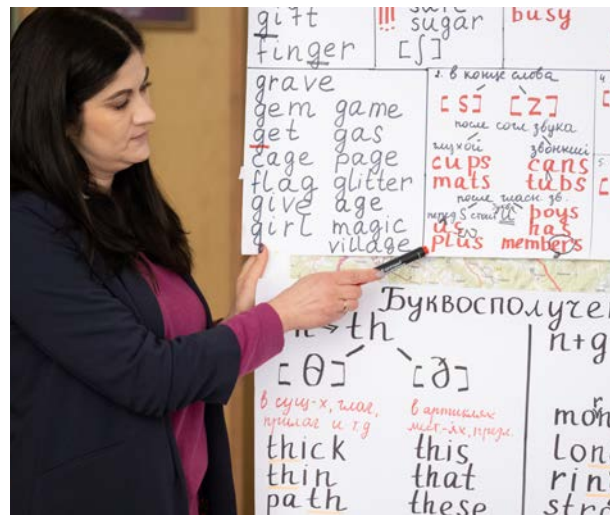 gift
finger
!!!
sugar
[ʃ]
busy
grave
gem game
get gas
cage page
flag glitter
give age
girl magic
village
2. в конце слова
[s] [z]
после согл звука
глухой звонкий
cups cans
mats tubs
после гласн. зв.
перед s стоит u
boys
us has
plus members
Буквосполучен
th n+g
[θ] [ð]
в сущ-х, глаг,
прилаг и т.д
в артиклях
thick this
thin that
path these